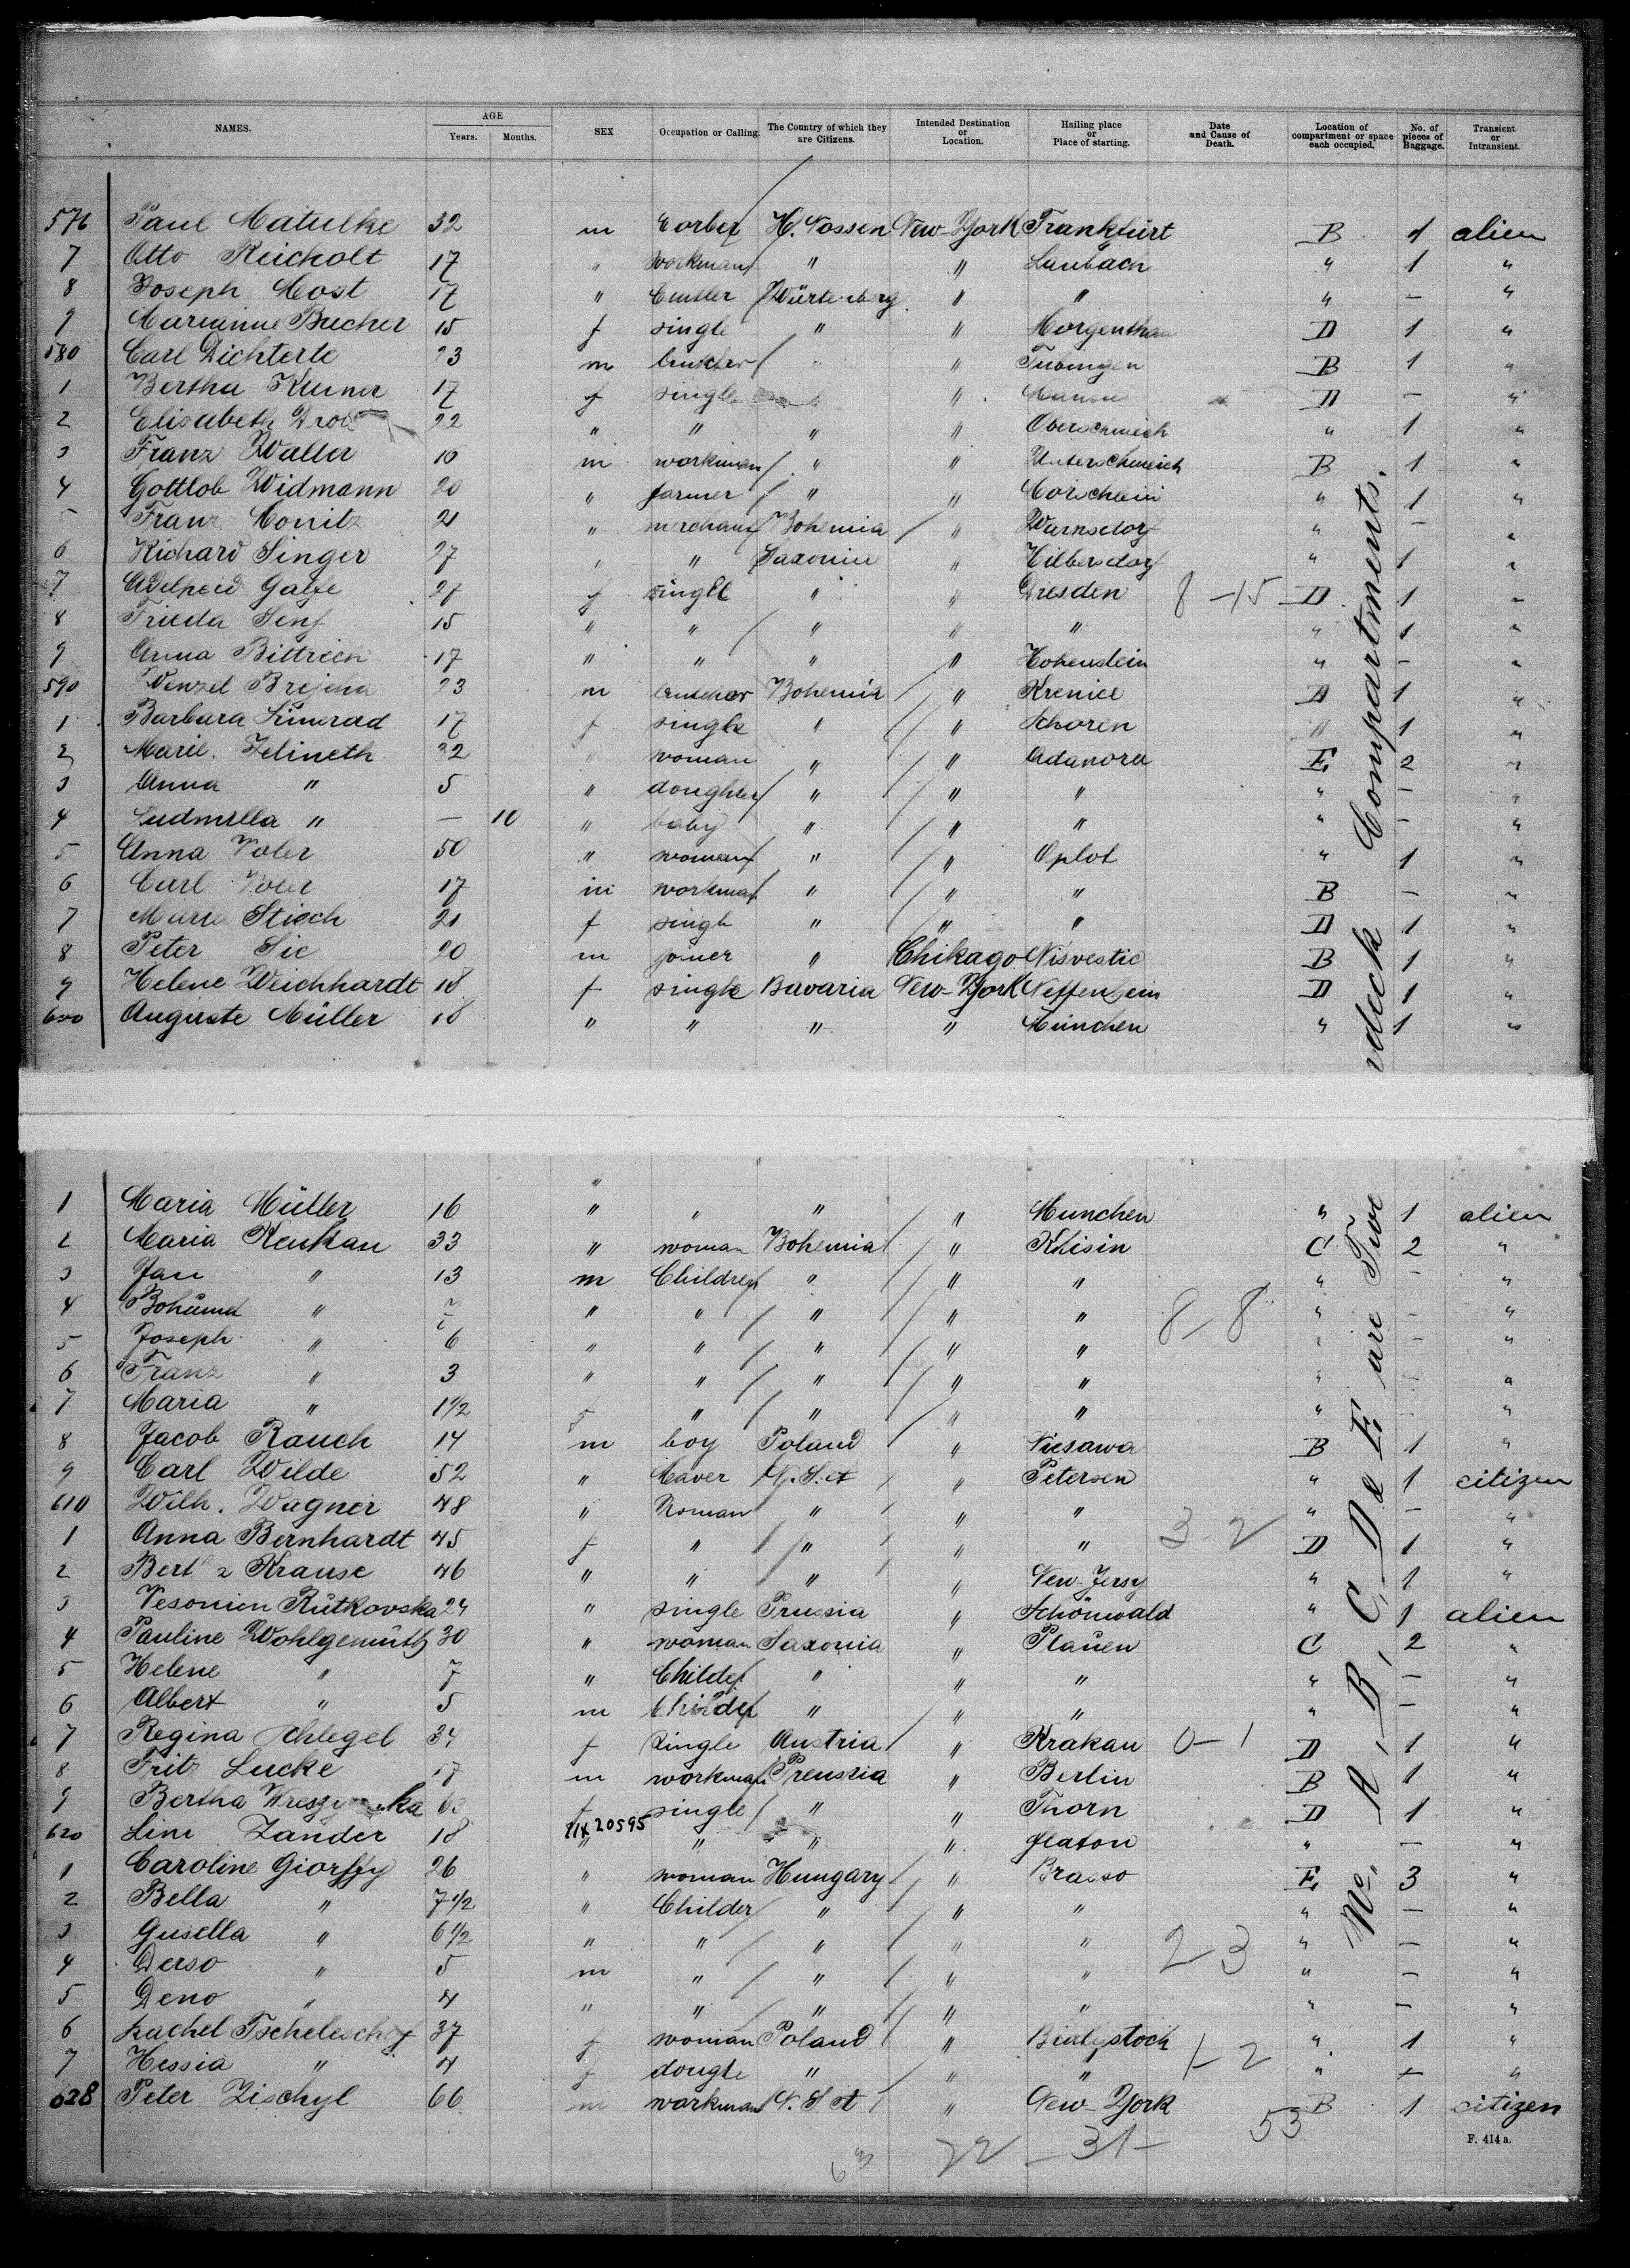 NAMES. AGE Years. Months. SEX Occupation or Calling. The Country of which they are Citizens. Intended Destination or Location. Hailing place or Place of starting. Date and Cause of Death. Location of compartment or space each occupied. No. of pieces of Baggage. Transient or Intransient.
576 Paul Matulke 32 m H. Nossen New-York Frankfurt B 1 alien
7 Otto Reicholt 17 " workman " " Laubach " 1 "
8 Joseph Most 17 " Würtemberg " " " — "
9 Marianne Bucher 15 f single " " Morgenthau D 1 "
580 Carl Dichterle 23 m " " Tubingen B 1 "
1 Bertha 17 f single " D — "
2 Elisabeth 22 " " " " " 1 "
3 Franz Waller 10 m workman " " B 1 "
4 Gottlob Widmann 20 " farmer " " " 1 "
5 Franz Monitz 21 " merchant Bohemia " Warnsdorf " — "
6 Richard Singer 27 " " Saxonia " Hilbersdorf " 1 "
7 27 f single " " Dresden 8-15 D 1 "
8 Frieda Senf 15 " " " " " " 1 "
9 Anna Bittrich 17 " " " " Hohenstein " — "
590 Wenzel Brejcha 23 m Bohemia " Krenice D 1 "
1 Barbara 17 f single " " Schoren D 1 "
2 Marie Jelineth 32 " woman " " Adanora E 2 "
3 Anna " 5 " doughter " " " " — "
4 Ludmilla " — 10 " baby " " " " — "
5 Anna Voler 50 " woman " " Oplot " 1 "
6 Carl Voler 17 m workman " " " B — "
7 Marie Stich 21 f single " " " D 1 "
8 Peter Sic 20 m joiner " Chikago Nisvestic B 1 "
9 Helene Weichhardt 18 f single Bavaria New-York D 1 "
600 Auguste Müller 18 " " " " München " 1 "
"
1 Maria Müller 16 " " " " Munchen " 1 alien
2 Maria Keukau 33 " woman Bohemia " Khisin C 2 "
3 Jan " 13 m Children " " " " — "
4 " 7 " " " " " 8-8 " — "
5 Joseph " 6 " " " " " " — "
6 Franz " 3 " " " " " " — "
7 Maria " 1 1/2 f " " " " " — "
8 Jacob Rauch 14 m boy Poland " Niesawa B 1 "
9 Carl Wilde 52 " " Petersen " 1 citizen
610 Wilh. Wagner 48 " Woman " " " " — "
1 Anna Bernhardt 45 f " " " " 3-2 D 1 "
2 Krause 46 " " " " New-Jersy " 1 "
3 Rutkovska 24 " single Prussia " Schönwald " 1 alien
4 Pauline Wohlgemuth 30 " woman Saxonia " Plauen C 2 "
5 Helene " 7 " Childer " " " " — "
6 Albert " 5 m Childer " " " " — "
7 Regina Schlegel 34 f single Austria " Krakau 0-1 D 1 "
8 Fritz Lucke 17 m workman Preussia " Berlin B 1 "
9 Bertha 63 f single " " Thorn D 1 "
620 Line Zander 18 11x20595 " " " " flaton " — "
1 Caroline Giorffy 26 " woman Hungary " Brasso E 3 "
2 Bella " 7 1/2 " Childer " " " " — "
3 Gusella " 6 1/2 " " " " " 2-3 " — "
4 Derso " 5 m " " " " " — "
5 Deno " 4 " " " " " " — "
6 Rachel Tscheleschof 37 f woman Poland " Bialystock " 1 "
7 Hessia " 4 f dougte " " " 1-2 " — "
628 Peter Zischyl 66 m workman " New-York B 1 citizen
63 22 -31- 53
F. 414 a.
A, B, C, D & E are Twe
vdeck Compartments.